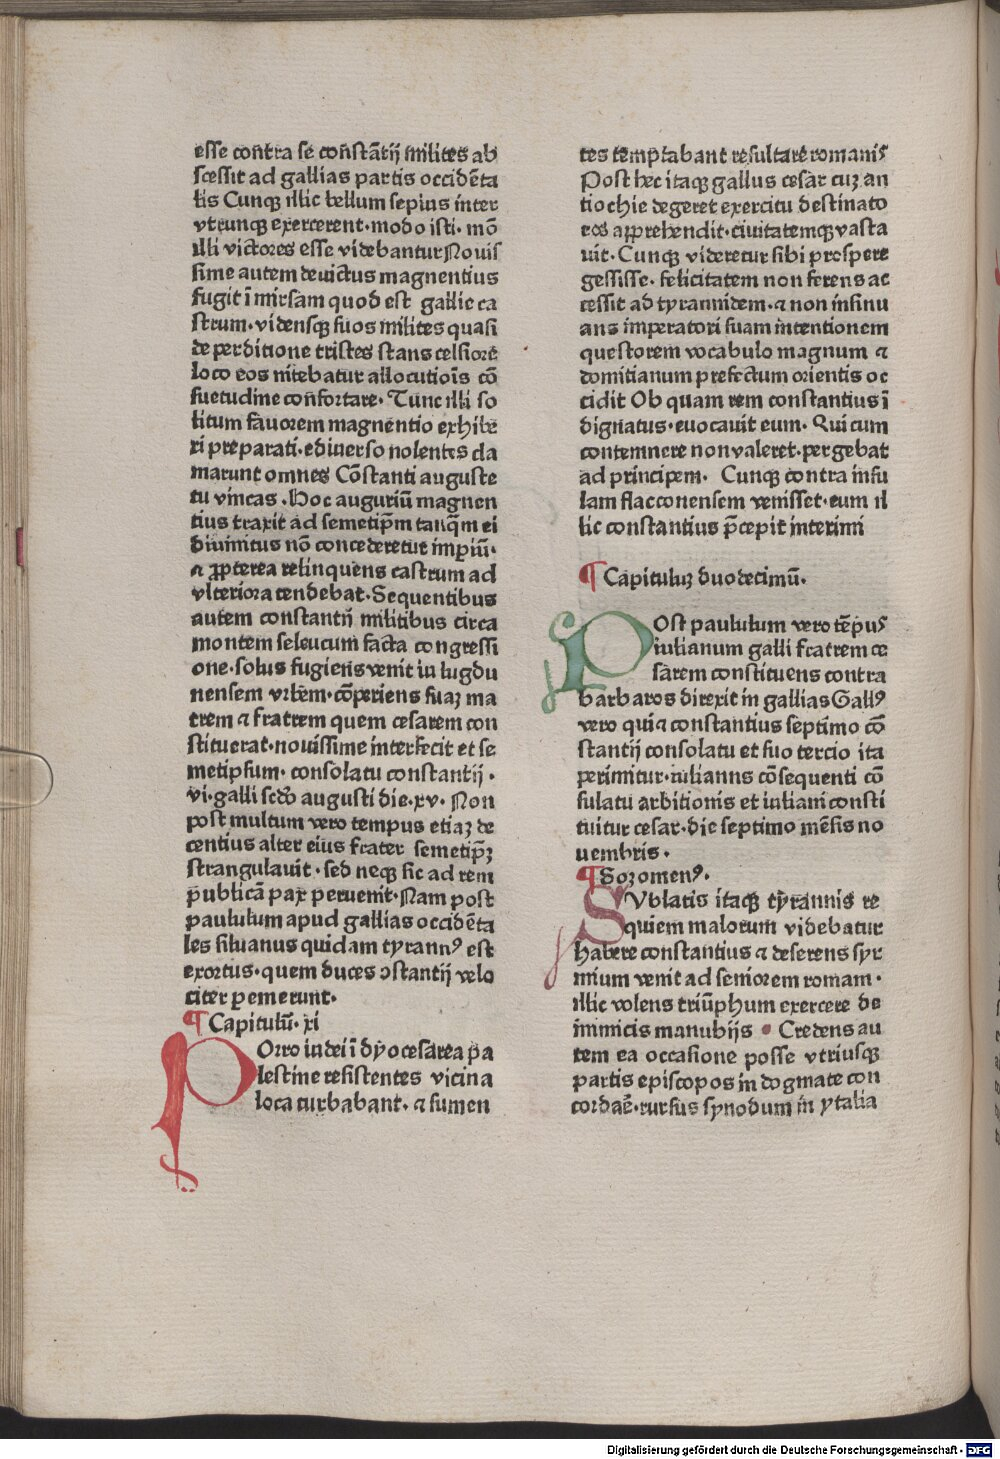 esse contra se constātij milites ab
scessit ad gallias partis occidēta
lis Cunqꝫ illic bellum sepius inter
vtrunqꝫ exercerent· modo isti· mō
illi victores esse videbantur Nouis
sime autem deuictus magnentius
fugit ī mirsam quod est gallie ca
strum· vidensqꝫ suos milites quasi
de perditione tristes stans celsiore
loco eos nitebatur allocutiōis cō
suetudine confortare· Tunc illi so
litum fauorem magnentio exhibe
ri preparati· ediuerso nolentes cla
marunt omnes Cōstanti auguste
tu vincas · Hoc auguriū magnen
tius traxit ad semetip̄m tanq̄m ei
diuinitus nō concederetur imꝑiū·
⁊ ꝓpterea relinquens castrum ad
vlteriora tendebat· Sequentibus
autem constantij militibus circa
montem seleucum facta congressi
one· solus fugiens venit in lugdu
nensem vrbem· cōperiens suaꝫ ma
trem ⁊ fratrem quem cesarem con
stituerat· nouissime interfecit et se
metipsum· consolatu constantij ·
vi· galli scd̄o augusti die· xv· Non
post multum vero tempus etiaꝫ de
centius alter eius frater semetip̄ꝫ
strangulauit · sed neqꝫ sic ad rem
publicā pax peruenit· Nam post
paululum apud gallias occidēta
les siluanus quidam tyrannꝰ est
exortus· quem duces ꝯstantij velo
citer ꝑemerunt·
¶ Capitulū· xi
Porro iudei ī dyocesarea pa
lestine resistentes vicina
loca turbabant· ⁊ sumen
tes temptabant resultare romanis
Post hec itaqꝫ gallus cesar cuꝫ an
tiochie degeret exercitu destinato
eos apprehendit· ciuitatemqꝫ vasta
uit· Cunqꝫ videretur sibi prospere
gessisse· felicitatem non ferens ac
cessit ad tyrannidem· ⁊ non insinu
ans imperatori suam intentionem
questorem vocabulo magnum ⁊
domitianum prefectum orientis oc
cidit Ob quam rem constantius ī
dignatus· euocauit eum· Qui cum
contemnere non valeret· pergebat
ad principem· Cunqꝫ contra insu
lam flacconensem venisset· eum il
lic constantius p̄cepit interimi
¶ Capituluꝫ duodecimū·
Post paululum vero tēpus
iulianum galli fratrem ce
sarem constituens contra
barbaros direxit in gallias Gallꝰ
vero quia constantius septimo cō
stantij consolatu et suo tercio ita
perimitur· iulianns cōsequenti cō
sulatu arbitionis et iuliani consti
tuitur cesar· die septimo mēsis no
uembris·
¶ Sozomenꝰ·
SVblatis itaqꝫ tyrannis re
quiem malorum videbatur
habere constantius ⁊ deserens syr
mium venit ad seniorem romam·
illic volens triūphum exercere de
inimicis manubijs · Credens au
tem ea occasione posse vtriusqꝫ
partis episcopos in dogmate con
cordaē· rursus synodum in ytalia
Digitalisierung gefördert durch die Deutsche Forschungsgemeinschaft - DFG